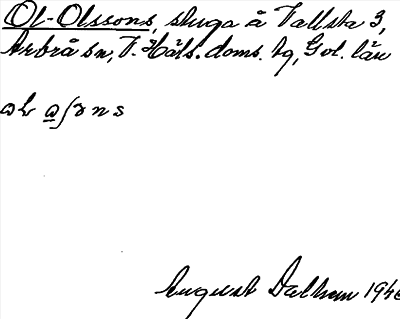 Ol-Olssons, stuga å Vallsta 3,
Arbrå sn, V. Häls. doms. hg, Gvl. län
August Dalhum 194